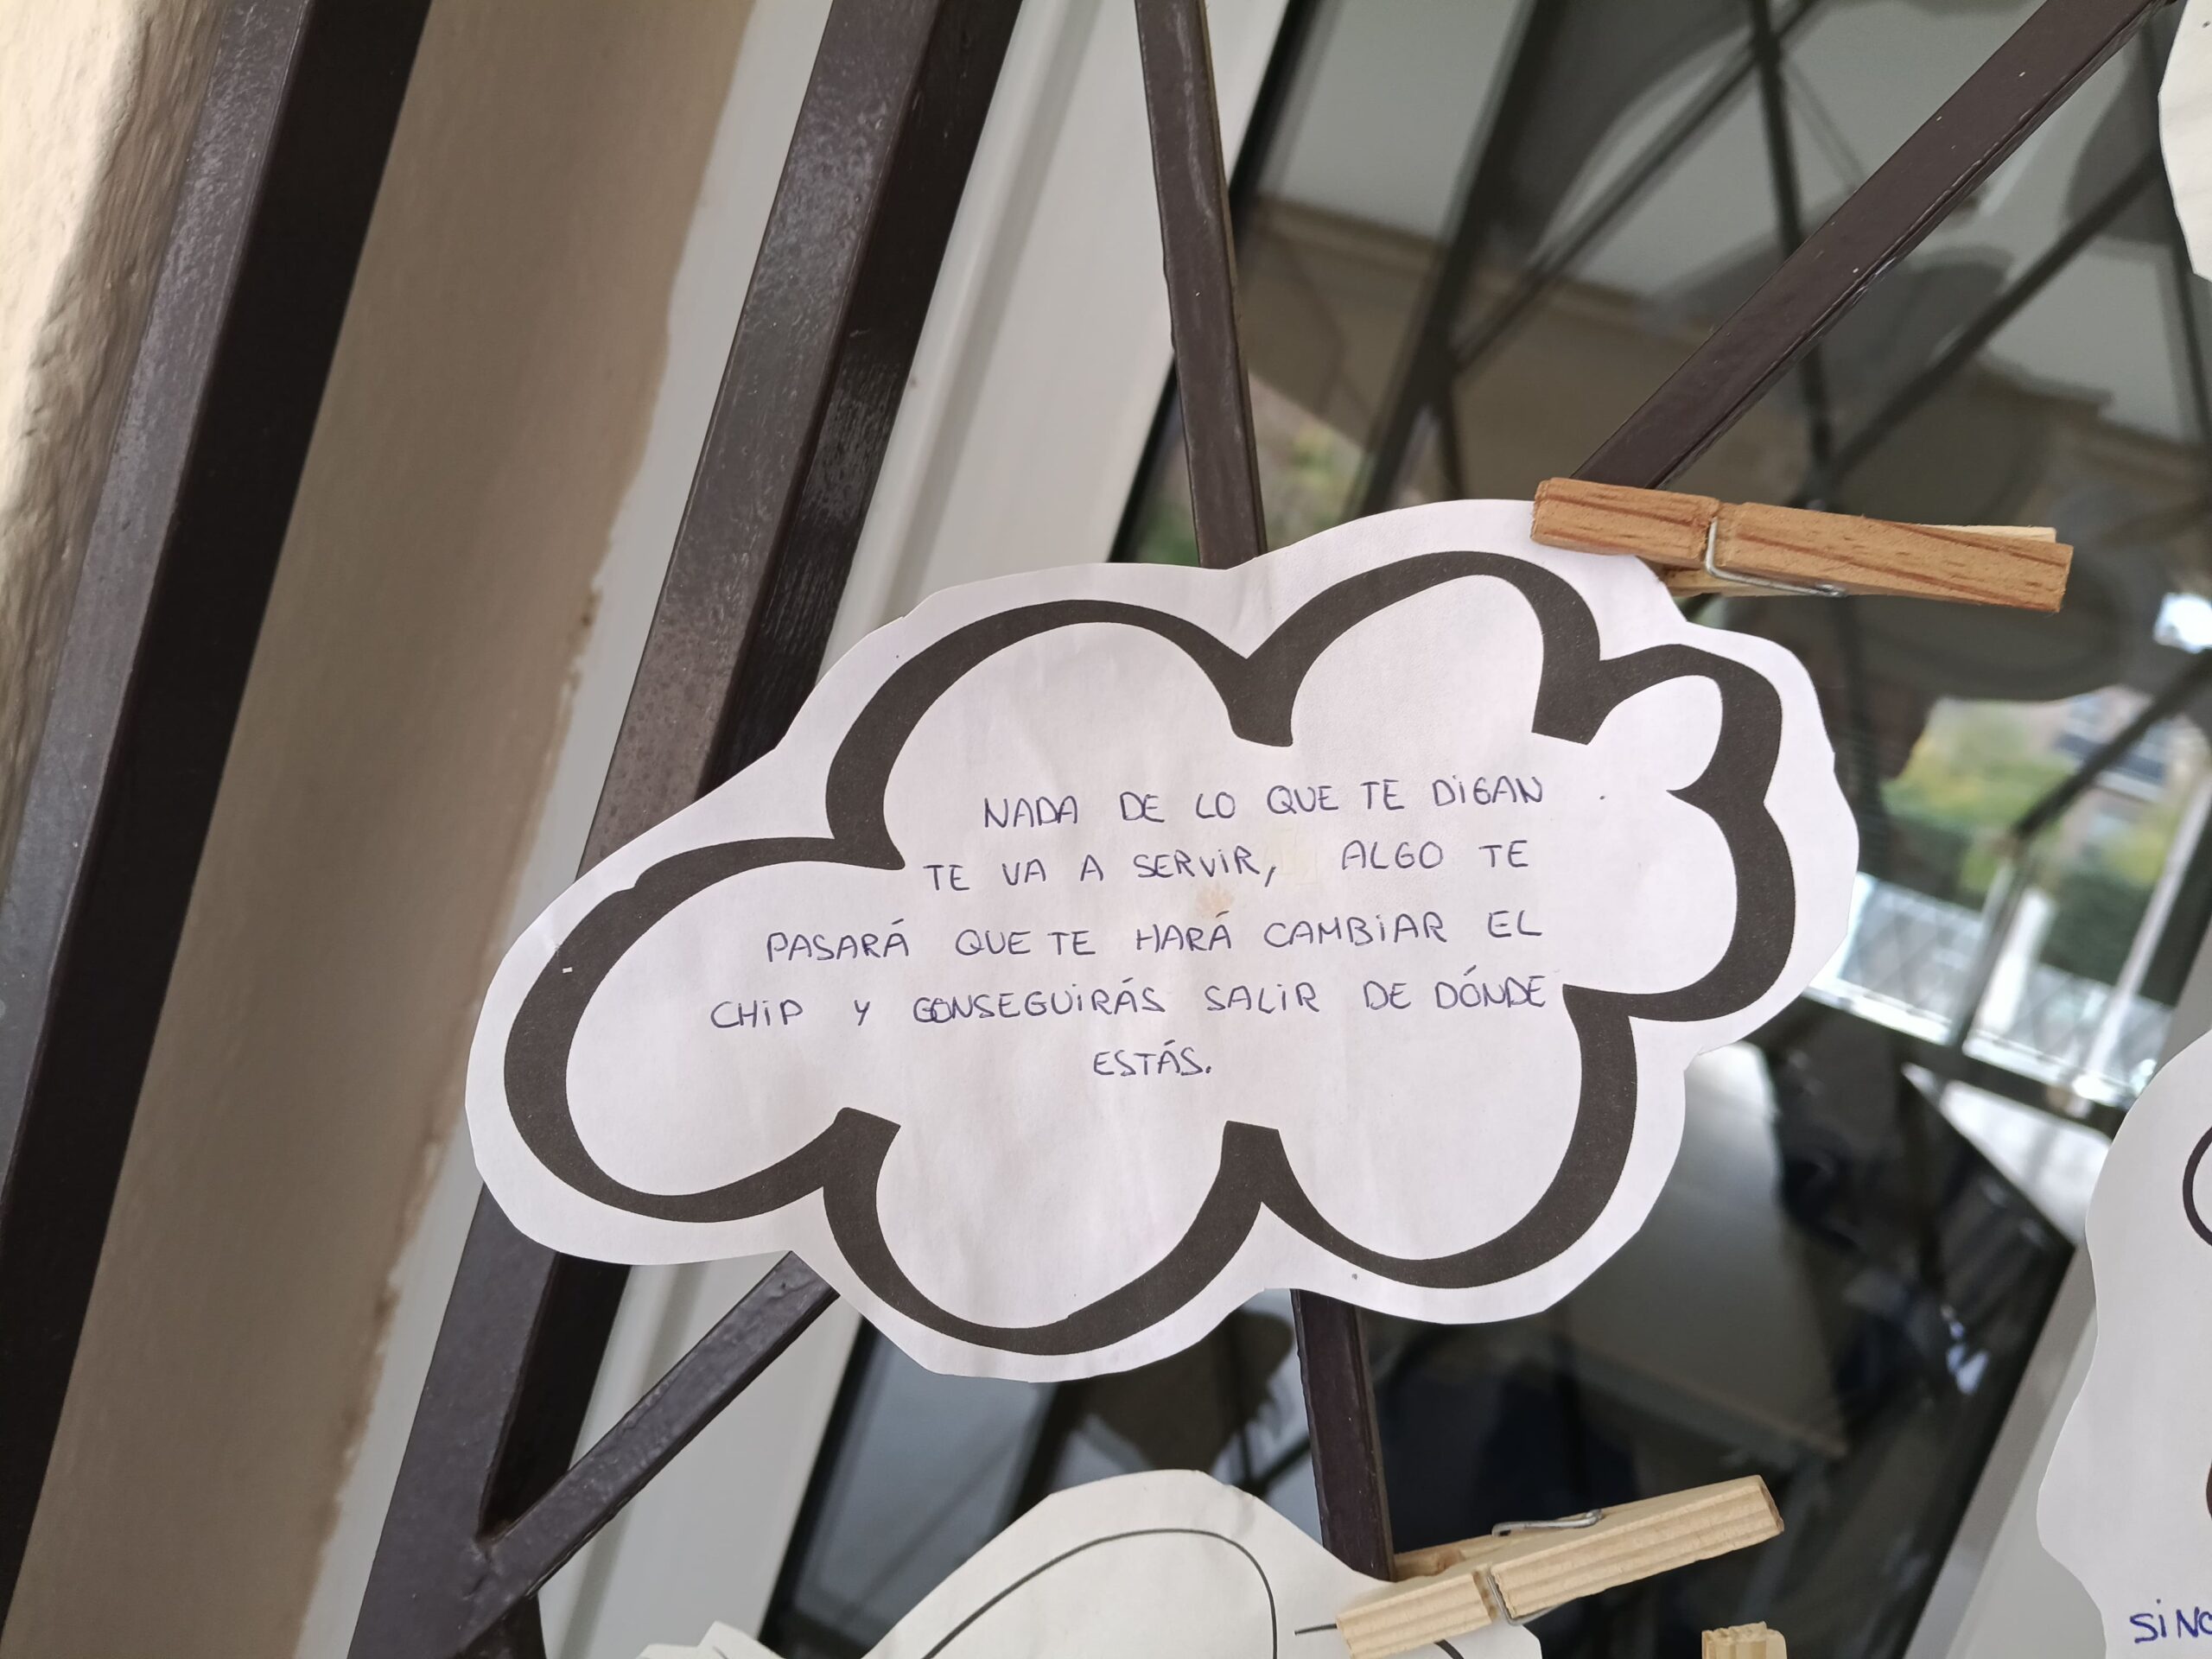 NADA DE LO QUE TE DiGAN
TE VA A SERViR, ALGO TE
PASARÁ QUE TE HARÁ CAMBiAR EL
CHiP Y CONSEGUiRÁS SALiR DE DÓNDE
ESTÁS.